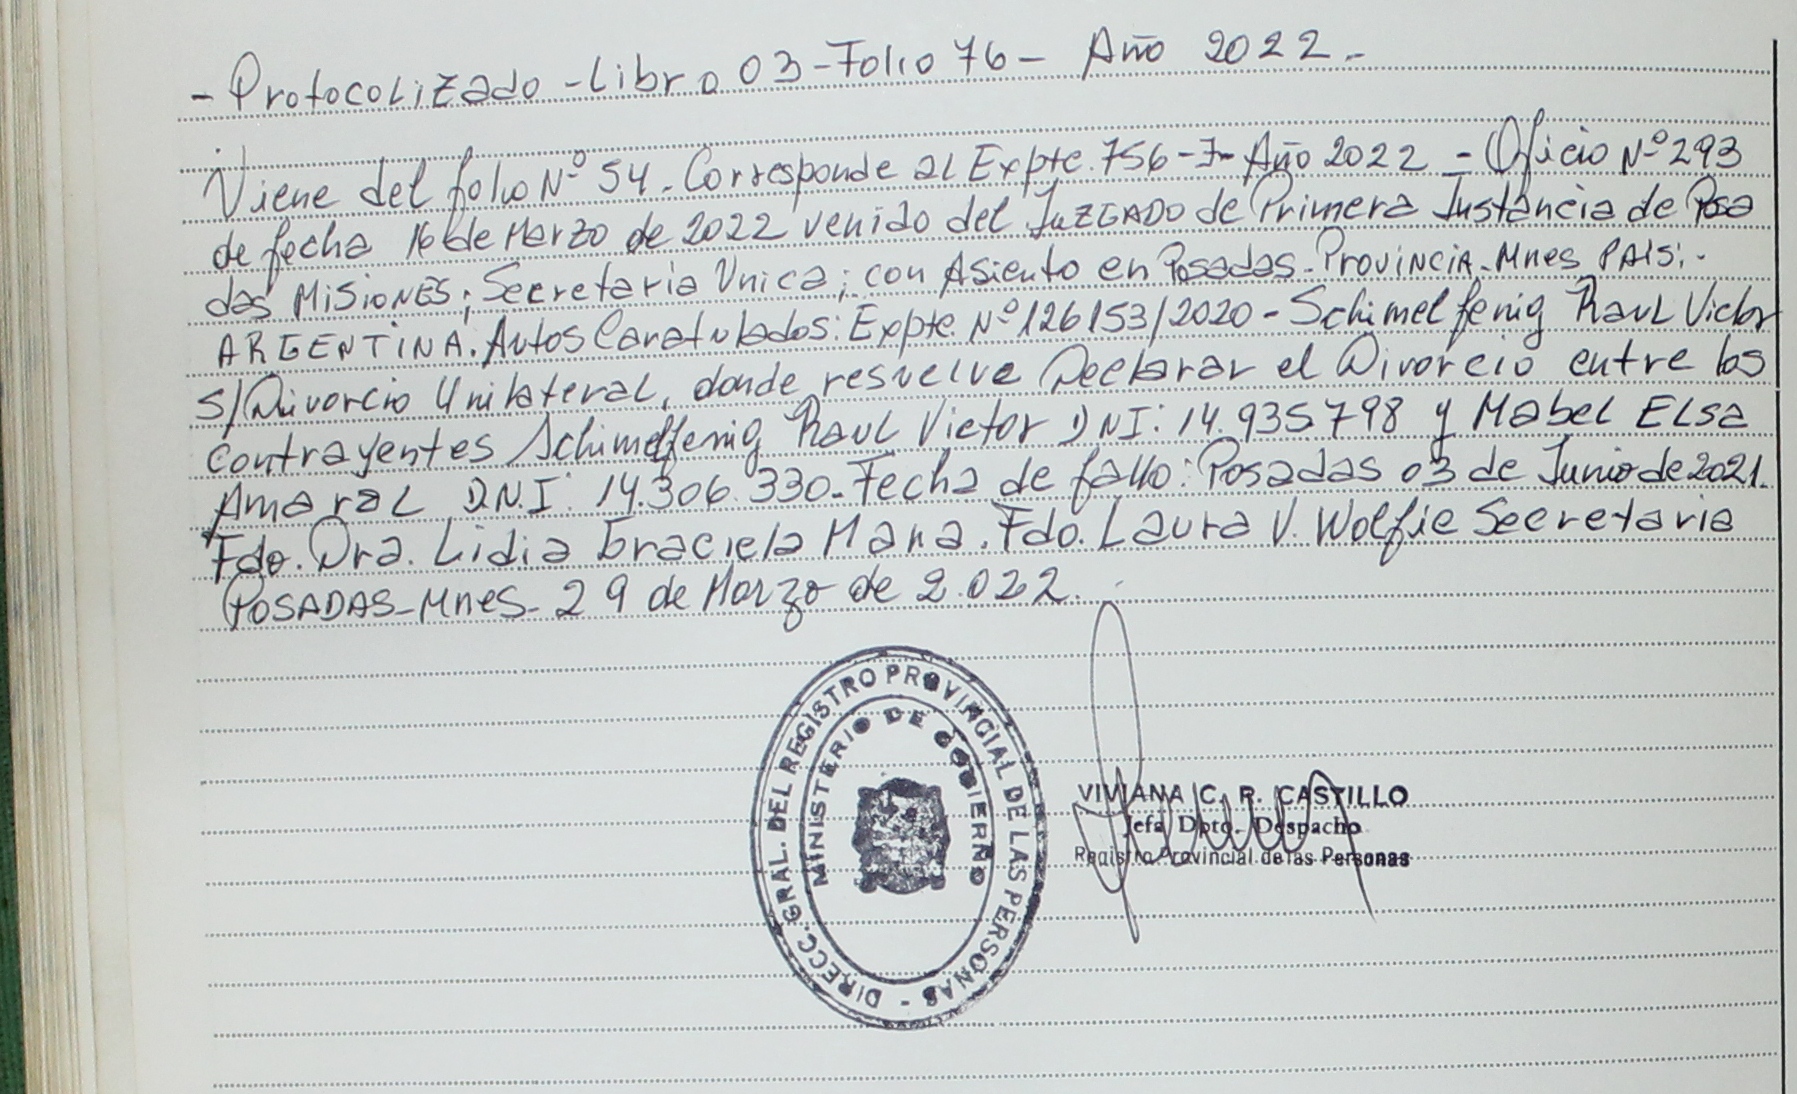 - Protocolizado - Libro 03 - Folio 76 - Año 2022.-
Viene del folio Nº 54. Corresponde al Expte. 756-J- Año 2022 - Oficio Nº 293
de fecha 16 de Marzo de 2022 venido del JUZGADO de Primera Instancia de Posa
das MISIONES; Secretaria Unica; con Asiento en Posadas - PROVINCIA - Mnes PAIS:-
ARGENTINA. Autos Caratulados: Expte. Nº 126153/2020 - Schimelfenig Raul Victor
S/Divorcio Unilateral, donde resuelve Declarar el Divorcio entre los
contrayentes Schimelfenig Raul Victor DNI: 14.935798 y Mabel ELSA
Amaral D.N.I: 14.306.330 - Fecha de fallo: Posadas 03 de Junio de 2021.
Fdo. Dra. Lidia Graciela Mana. Fdo. Laura V. Wolfie Secretaria
POSADAS - Mnes - 29 de Marzo de 2.022.
DIRECC. GRAL. DEL REGISTRO PROVINCIAL DE LAS PERSONAS -
MINISTERIO DE GOBIERNO
VIVIANA C. R. CASTILLO
Jefa Dpto. Despacho
Registro Provincial de las Personas